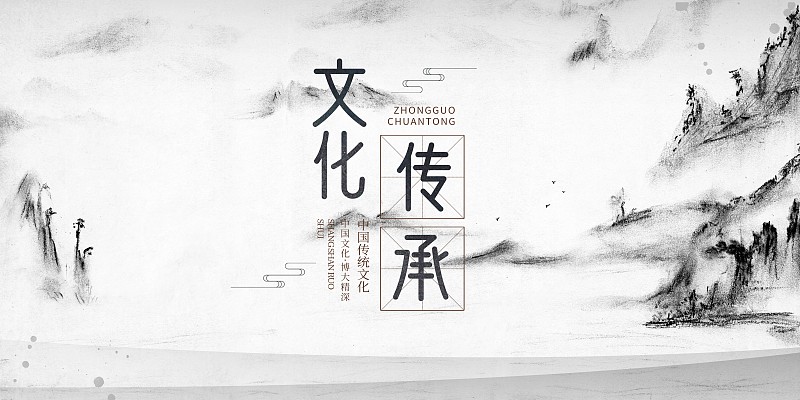 文化
传承
ZHONGGUO
CHUANTONG
中国传统文化
中国文化·博大精深
SHANG SHAN RUO
SHUI